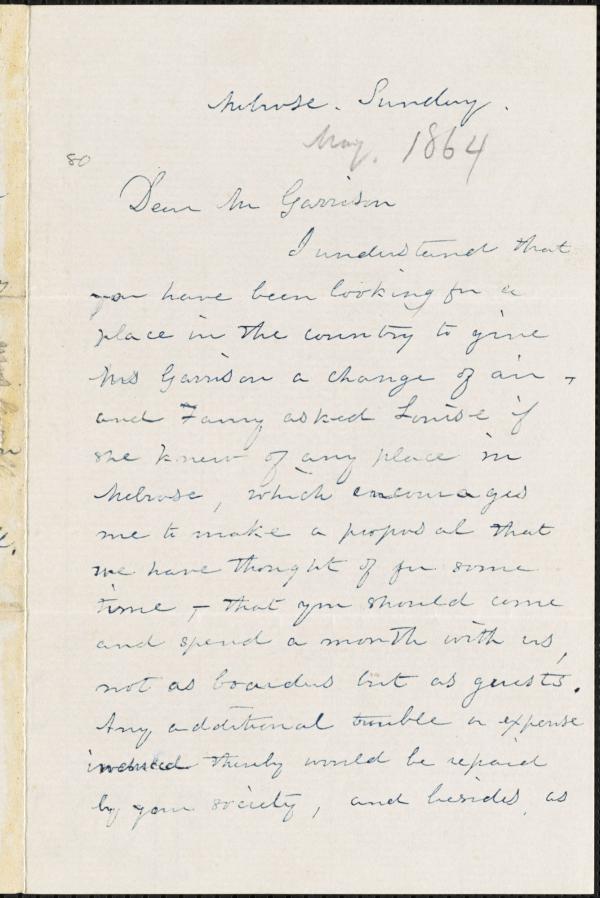 Melrose. Sunday.
May. 1864
80
Dear Mr Garrison
I understand that
you have been looking for a
place in the country to give
Mrs Garrison a change of air -
and Fanny asked Louise if
she knew of any place in
Melrose, which encourages
me to make a proposal that
we have thought of for some
time - that you should come
and spend a month with us,
not as boarders but as guests.
Any additional trouble or expense
incurred thereby would be repaid
by your society, and besides, as